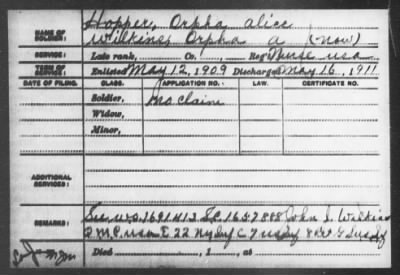 Hopper, Orpha alice
NAME OF SOLDIER: Wilkins, Orpha a (now)
SERVICE: Late rank, Co. , Reg't Nurse usa
TERM OF SERVICE: Enlisted May 12, 1909 Discharged May 16, 1911
DATE OF FILING. CLASS. APPLICATION NO. LAW. CERTIFICATE NO.
Soldier, no claim
Widow,
Minor,
ADDITIONAL SERVICES:
REMARKS: See w.o. 1691413 John S. Wilkins
Died , 1 , at